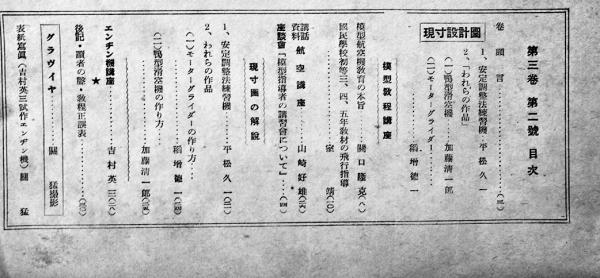 第三卷 第二號 目次
卷頭言……(三)
現寸設計圖
1、安定調整法練習機…平松久一
2、「われらの作品」
(一)鴨型滑空機……加藤清一郎
(二)モーターグライダー……稻增德一
模型教程講座
模型航空機教育の本旨……關口隆克(八)
國民學校初等三、四、五年敎材の飛行指導……室靖(一〇)
講話資料 航空講座……山崎好雄(六)
座談會「模型指導者の講習會について」……(四)
現寸圖の解說
1、安定調整法練習機……平松久一(三)
2、われらの作品
(一)モーターグライダーの作り方…
稻增德一(四)
(二)鴨型滑空機の作り方…
加藤清一郎(五)
エンヂン機講座……吉村英三(六)
★
後記・讀者の聲・敎程正誤表……
グラヴイヤ……關猛撮影
表紙寫眞(吉村英三氏作エンヂン機)關猛